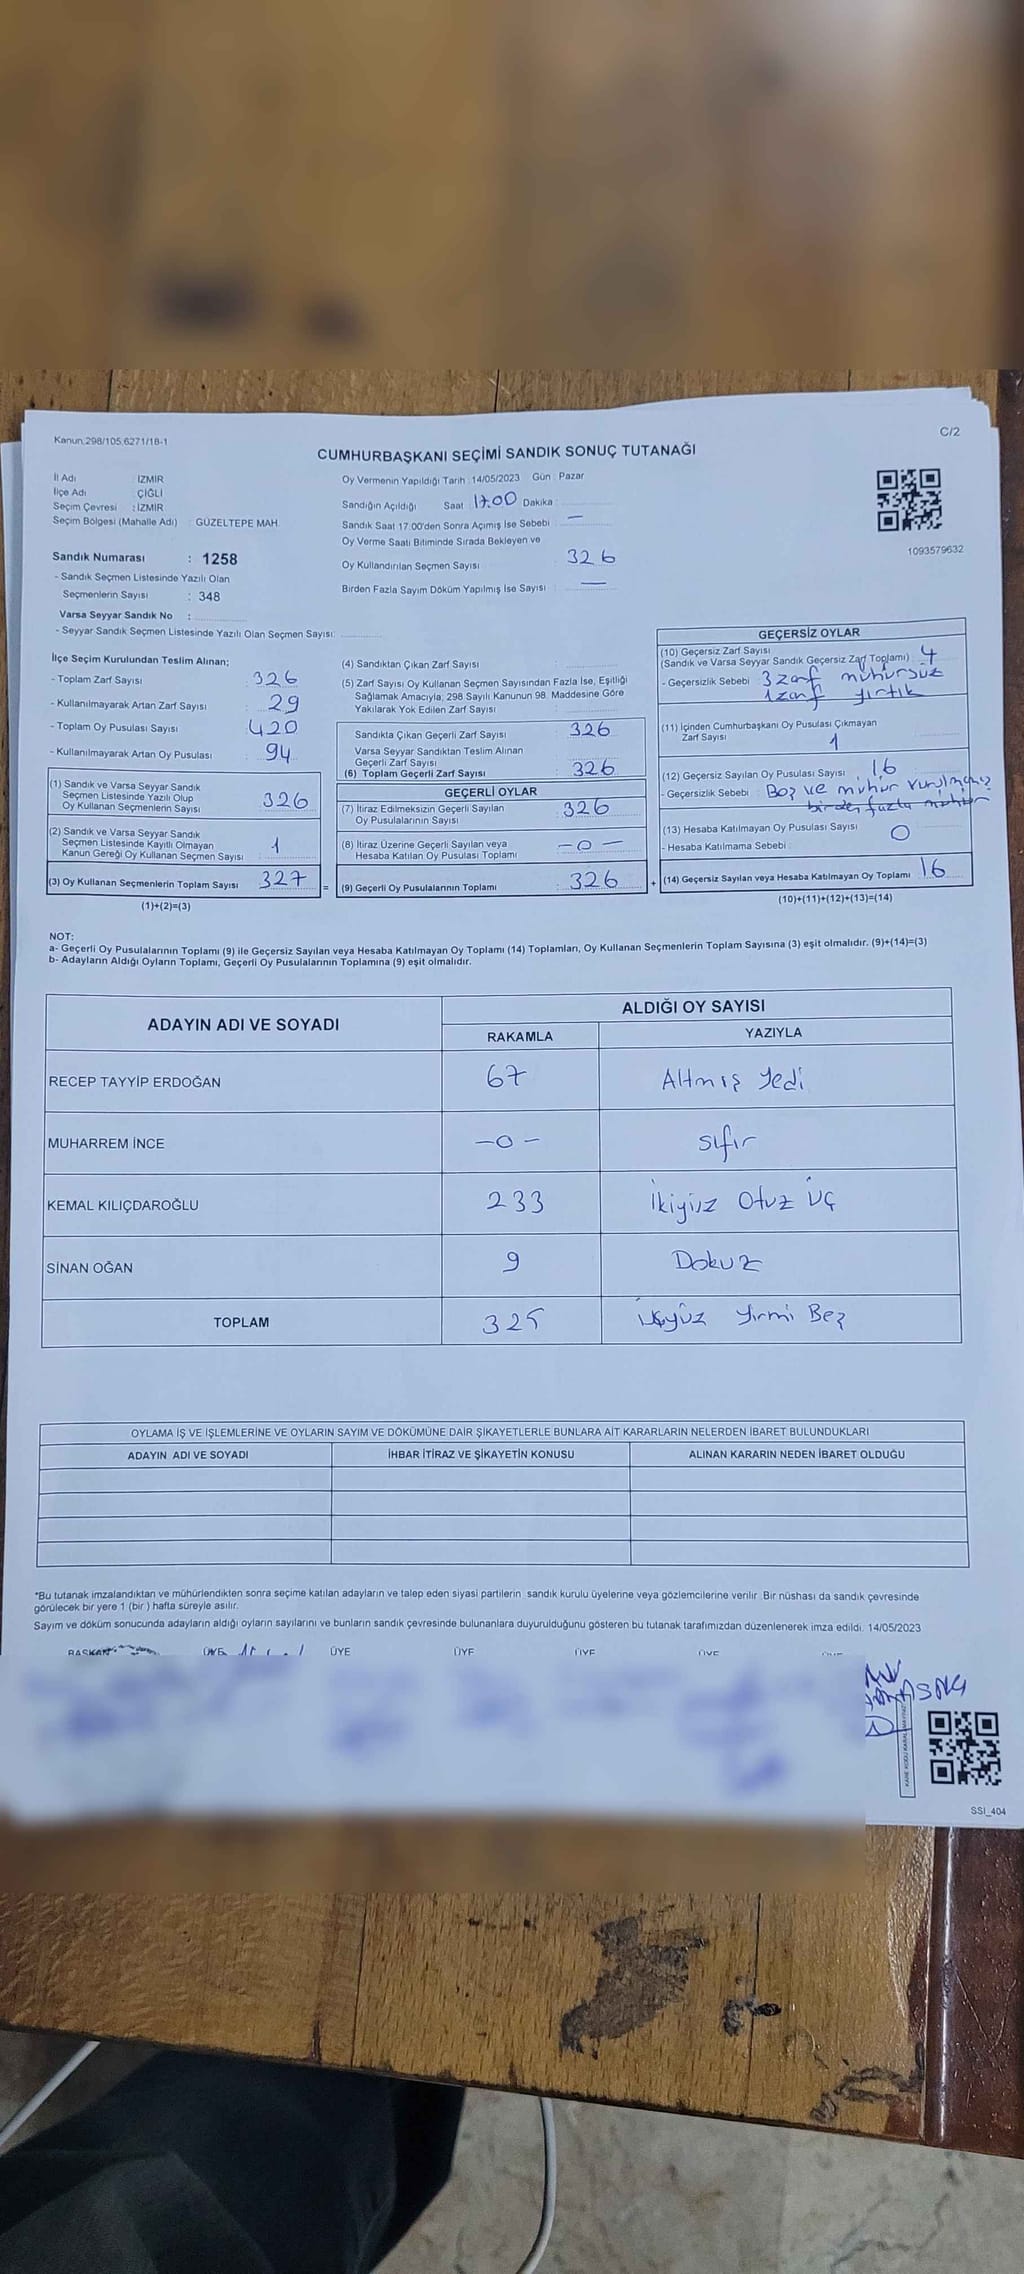 Kanun.298/105,6271/18-1
C/2
CUMHURBAŞKANI SEÇİMİ SANDIK SONUÇ TUTANAĞI
İl Adı : İZMİR
İlçe Adı : ÇİĞLİ
Seçim Çevresi : İZMİR
Seçim Bölgesi (Mahalle Adı) : GÜZELTEPE MAH.
Sandık Numarası : 1258
- Sandık Seçmen Listesinde Yazılı Olan
Seçmenlerin Sayısı : 348
Varsa Seyyar Sandık No :
- Seyyar Sandık Seçmen Listesinde Yazılı Olan Seçmen Sayısı:
Oy Vermenin Yapıldığı Tarih :14/05/2023 Gün : Pazar
Sandığın Açıldığı Saat 17.00 Dakika :
Sandık Saat 17.00'den Sonra Açımış İse Sebebi : —
Oy Verme Saati Bitiminde Sırada Bekleyen ve
Oy Kullandırılan Seçmen Sayısı : 326
Birden Fazla Sayım Döküm Yapılmış İse Sayısı : —
1093579632
İlçe Seçim Kurulundan Teslim Alınan;
- Toplam Zarf Sayısı : 326
- Kullanılmayarak Artan Zarf Sayısı : 29
- Toplam Oy Pusulası Sayısı : 420
- Kullanılmayarak Artan Oy Pusulası : 94
(1) Sandık ve Varsa Seyyar Sandık
Seçmen Listesinde Yazılı Olup
Oy Kullanan Seçmenlerin Sayısı : 326
(2) Sandık ve Varsa Seyyar Sandık
Seçmen Listesinde Kayıtlı Olmayan
Kanun Gereği Oy Kullanan Seçmen Sayısı : 1
(3) Oy Kullanan Seçmenlerin Toplam Sayısı : 327
(1)+(2)=(3)
=
(4) Sandıktan Çıkan Zarf Sayısı :
(5) Zarf Sayısı Oy Kullanan Seçmen Sayısından Fazla İse, Eşitliği
Sağlamak Amacıyla; 298 Sayılı Kanunun 98. Maddesine Göre
Yakılarak Yok Edilen Zarf Sayısı :
Sandıkta Çıkan Geçerli Zarf Sayısı : 326
Varsa Seyyar Sandıktan Teslim Alınan
Geçerli Zarf Sayısı :
(6) Toplam Geçerli Zarf Sayısı : 326
GEÇERLİ OYLAR
(7) İtiraz Edilmeksizin Geçerli Sayılan
Oy Pusulalarının Sayısı : 326
(8) İtiraz Üzerine Geçerli Sayılan veya
Hesaba Katılan Oy Pusulası Toplamı : —0—
(9) Geçerli Oy Pusulalarının Toplamı : 326
+
GEÇERSİZ OYLAR
(10) Geçersiz Zarf Sayısı
(Sandık ve Varsa Seyyar Sandık Geçersiz Zarf Toplamı) : 4
- Geçersizlik Sebebi : 3 zarf mühürsüz
1 zarf yırtık
(11) İçinden Cumhurbaşkanı Oy Pusulası Çıkmayan
Zarf Sayısı : 1
(12) Geçersiz Sayılan Oy Pusulası Sayısı : 16
- Geçersizlik Sebebi : Boş ve mühür vurulmamış
birden fazla mühür
(13) Hesaba Katılmayan Oy Pusulası Sayısı : 0
- Hesaba Katılmama Sebebi :
(14) Geçersiz Sayılan veya Hesaba Katılmayan Oy Toplamı : 16
(10)+(11)+(12)+(13)=(14)
NOT:
a- Geçerli Oy Pusulalarının Toplamı (9) ile Geçersiz Sayılan veya Hesaba Katılmayan Oy Toplamı (14) Toplamları, Oy Kullanan Seçmenlerin Toplam Sayısına (3) eşit olmalıdır. (9)+(14)=(3)
b- Adayların Aldığı Oyların Toplamı, Geçerli Oy Pusulalarının Toplamına (9) eşit olmalıdır.
ADAYIN ADI VE SOYADI
ALDIĞI OY SAYISI
RAKAMLA YAZIYLA
RECEP TAYYİP ERDOĞAN 67 Altmış Yedi
MUHARREM İNCE —0— sıfır
KEMAL KILIÇDAROĞLU 233 İkiyüz Otuz Üç
SİNAN OĞAN 9 Dokuz
TOPLAM 325 Üçyüz Yirmi Beş
OYLAMA İŞ VE İŞLEMLERİNE VE OYLARIN SAYIM VE DÖKÜMÜNE DAİR ŞİKAYETLERLE BUNLARA AİT KARARLARIN NELERDEN İBARET BULUNDUKLARI
ADAYIN ADI VE SOYADI İHBAR İTİRAZ VE ŞİKAYETİN KONUSU ALINAN KARARIN NEDEN İBARET OLDUĞU
*Bu tutanak imzalandıktan ve mühürlendikten sonra seçime katılan adayların ve talep eden siyasi partilerin sandık kurulu üyelerine veya gözlemcilerine verilir. Bir nüshası da sandık çevresinde
görülecek bir yere 1 (bir ) hafta süreyle asılır.
Sayım ve döküm sonucunda adayların aldığı oyların sayılarını ve bunların sandık çevresinde bulunanlara duyurulduğunu gösteren bu tutanak tarafımızdan düzenlenerek imza edildi. 14/05/2023
BAŞKAN ÜYE ÜYE ÜYE ÜYE ÜYE
SSI_404